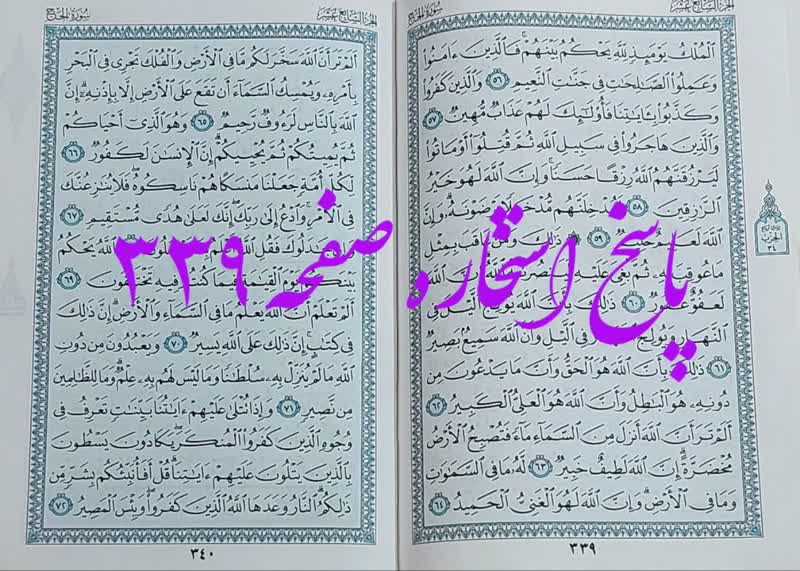 الجزء السابع عشر
سورة الحج
ٱلْمُلْكُ يَوْمَئِذٍ لِّلَّهِ يَحْكُمُ بَيْنَهُمْ فَٱلَّذِينَ ءَامَنُوا۟
وَعَمِلُوا۟ ٱلصَّٰلِحَٰتِ فِى جَنَّٰتِ ٱلنَّعِيمِ ٥٦ وَٱلَّذِينَ كَفَرُوا۟
وَكَذَّبُوا۟ بِـَٔايَٰتِنَا فَأُو۟لَٰٓئِكَ لَهُمْ عَذَابٌ مُّهِينٌ ٥٧
وَٱلَّذِينَ هَاجَرُوا۟ فِى سَبِيلِ ٱللَّهِ ثُمَّ قُتِلُوٓا۟ أَوْ مَاتُوا۟
لَيَرْزُقَنَّهُمُ ٱللَّهُ رِزْقًا حَسَنًا وَإِنَّ ٱللَّهَ لَهُوَ خَيْرُ
ٱلرَّٰزِقِينَ ٥٨ لَيُدْخِلَنَّهُم مُّدْخَلًا يَرْضَوْنَهُۥ وَإِنَّ
ٱللَّهَ لَعَلِيمٌ حَلِيمٌ ٥٩ ذَٰلِكَ وَمَنْ عَاقَبَ بِمِثْلِ
مَا عُوقِبَ بِهِۦ ثُمَّ بُغِىَ عَلَيْهِ لَيَنصُرَنَّهُ ٱللَّهُ إِنَّ ٱللَّهَ
لَعَفُوٌّ غَفُورٌ ٦٠ ذَٰلِكَ بِأَنَّ ٱللَّهَ يُولِجُ ٱلَّيْلَ فِى
ٱلنَّهَارِ وَيُولِجُ ٱلنَّهَارَ فِى ٱلَّيْلِ وَأَنَّ ٱللَّهَ سَمِيعٌۢ بَصِيرٌ
٦١ ذَٰلِكَ بِأَنَّ ٱللَّهَ هُوَ ٱلْحَقُّ وَأَنَّ مَا يَدْعُونَ مِن
دُونِهِۦ هُوَ ٱلْبَٰطِلُ وَأَنَّ ٱللَّهَ هُوَ ٱلْعَلِىُّ ٱلْكَبِيرُ ٦٢
أَلَمْ تَرَ أَنَّ ٱللَّهَ أَنزَلَ مِنَ ٱلسَّمَآءِ مَآءً فَتُصْبِحُ ٱلْأَرْضُ
مُخْضَرَّةً إِنَّ ٱللَّهَ لَطِيفٌ خَبِيرٌ ٦٣ لَّهُۥ مَا فِى ٱلسَّمَٰوَٰتِ
وَمَا فِى ٱلْأَرْضِ وَإِنَّ ٱللَّهَ لَهُوَ ٱلْغَنِىُّ ٱلْحَمِيدُ ٦٤
٣٣٩
الحزب
الجزء السابع عشر
سورة الحج
أَلَمْ تَرَ أَنَّ ٱللَّهَ سَخَّرَ لَكُم مَّا فِى ٱلْأَرْضِ وَٱلْفُلْكَ تَجْرِى فِى ٱلْبَحْرِ
بِأَمْرِهِۦ وَيُمْسِكُ ٱلسَّمَآءَ أَن تَقَعَ عَلَى ٱلْأَرْضِ إِلَّا بِإِذْنِهِۦٓ إِنَّ
ٱللَّهَ بِٱلنَّاسِ لَرَءُوفٌ رَّحِيمٌ ٦٥ وَهُوَ ٱلَّذِىٓ أَحْيَاكُمْ
ثُمَّ يُمِيتُكُمْ ثُمَّ يُحْيِيكُمْ إِنَّ ٱلْإِنسَٰنَ لَكَفُورٌ ٦٦
لِّكُلِّ أُمَّةٍ جَعَلْنَا مَنسَكًا هُمْ نَاسِكُوهُ فَلَا يُنَٰزِعُنَّكَ
فِى ٱلْأَمْرِ وَٱدْعُ إِلَىٰ رَبِّكَ إِنَّكَ لَعَلَىٰ هُدًى مُّسْتَقِيمٍ ٦٧
وَإِن جَٰدَلُوكَ فَقُلِ ٱللَّهُ أَعْلَمُ بِمَا تَعْمَلُونَ ٦٨ ٱللَّهُ يَحْكُمُ
بَيْنَكُمْ يَوْمَ ٱلْقِيَٰمَةِ فِيمَا كُنتُمْ فِيهِ تَخْتَلِفُونَ ٦٩
أَلَمْ تَعْلَمْ أَنَّ ٱللَّهَ يَعْلَمُ مَا فِى ٱلسَّمَآءِ وَٱلْأَرْضِ إِنَّ ذَٰلِكَ
فِى كِتَٰبٍ إِنَّ ذَٰلِكَ عَلَى ٱللَّهِ يَسِيرٌ ٧٠ وَيَعْبُدُونَ مِن دُونِ
ٱللَّهِ مَا لَمْ يُنَزِّلْ بِهِۦ سُلْطَٰنًا وَمَا لَيْسَ لَهُم بِهِۦ عِلْمٌ وَمَا لِلظَّٰلِمِينَ
مِن نَّصِيرٍ ٧١ وَإِذَا تُتْلَىٰ عَلَيْهِمْ ءَايَٰتُنَا بَيِّنَٰتٍ تَعْرِفُ فِى
وُجُوهِ ٱلَّذِينَ كَفَرُوا۟ ٱلْمُنكَرَ يَكَادُونَ يَسْطُونَ
بِٱلَّذِينَ يَتْلُونَ عَلَيْهِمْ ءَايَٰتِنَا قُلْ أَفَأُنَبِّئُكُم بِشَرٍّ مِّن
ذَٰلِكُمُ ٱلنَّارُ وَعَدَهَا ٱللَّهُ ٱلَّذِينَ كَفَرُوا۟ وَبِئْسَ ٱلْمَصِيرُ ٧٢
٣٤٠
پاسخ استخاره صفحه ۳۳۹